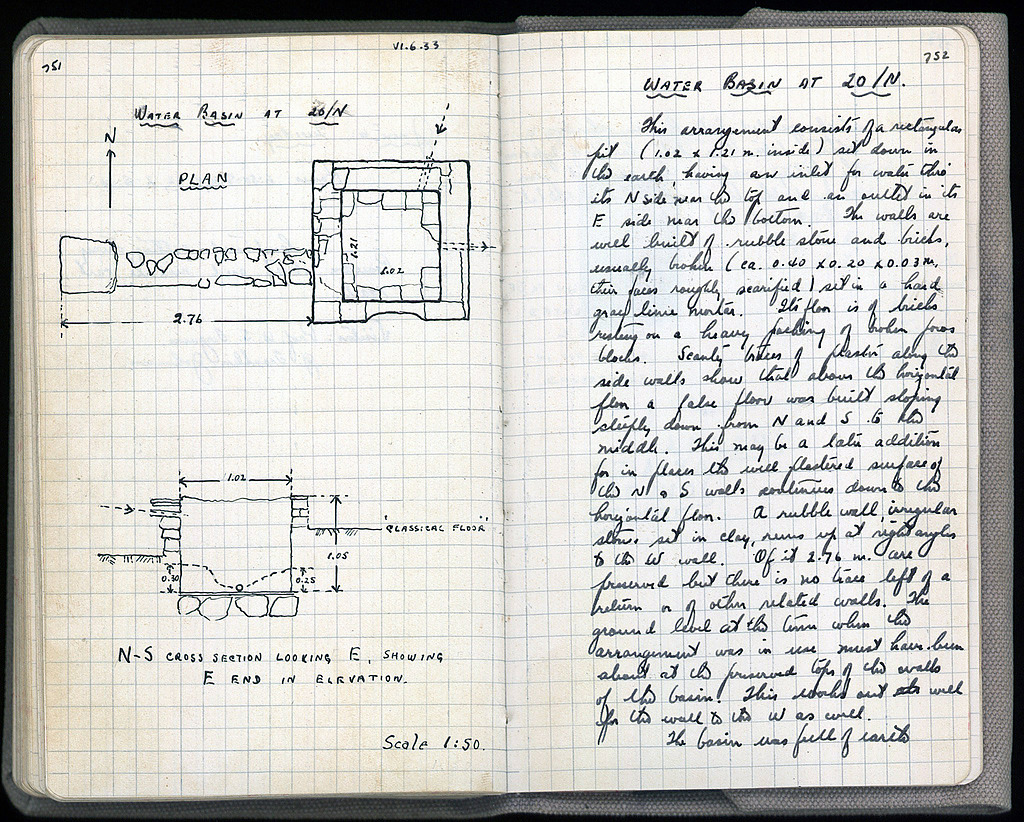 751
VI.6.33
WATER BASIN AT 20/N
N
PLAN
1.21
1.02
2.76
1.02
"CLASSICAL FLOOR"
1.05
0.30
0.25
N-S CROSS SECTION LOOKING E, SHOWING
E END IN ELEVATION.
Scale 1:50.
752
WATER BASIN AT 20/N.
This arrangement consists of a rectangular
pit (1.02 x 1.21 m. inside) set down in
the earth, having an inlet for water thro'
its N side near the top and an outlet in its
E side near the bottom. The walls are
well built of rubble stone and bricks,
usually broken (ca. 0.40 x 0.20 x 0.03 m,
their faces roughly scarified) set in a hard
gray lime mortar. Its floor is of bricks
resting on a heavy packing of broken poros
blocks. Scanty traces of plaster along the
side walls show that above the horizontal
floor a false floor was built sloping
steeply down from N and S to the
middle. This may be a later addition
for in places the well plastered surface of
the N & S walls continues down to the
horizontal floor. A rubble wall, irregular
stones set in clay, runs up at right angles
to the W wall. Of it 2.76 m. are
preserved but there is no trace left of a
return or of other related walls. The
ground level at the time when the
arrangement was in use must have been
about at the preserved tops of the walls
of the basin. This works out well
for the wall to the W as well.
The basin was full of earth